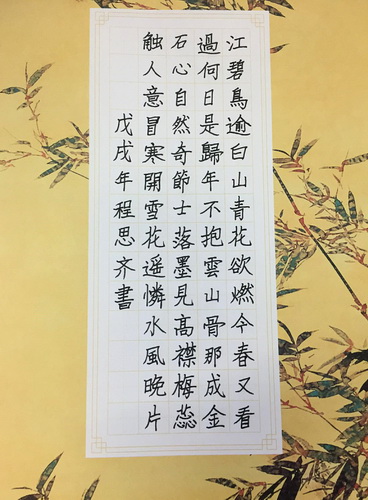 江碧鳥逾白山青花欲燃今春又看
過何日是歸年不抱雲山骨那成金
石心自然奇節士落墨見高襟梅蕊
触人意冒寒開雪花遥憐水風晚片
戊戌年程思齐書